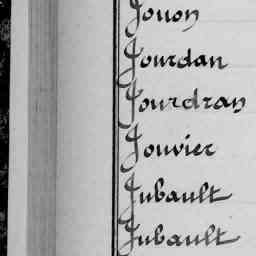 Jouon
Jourdan
Jourdran
Jouvier
Jubault
Jubault